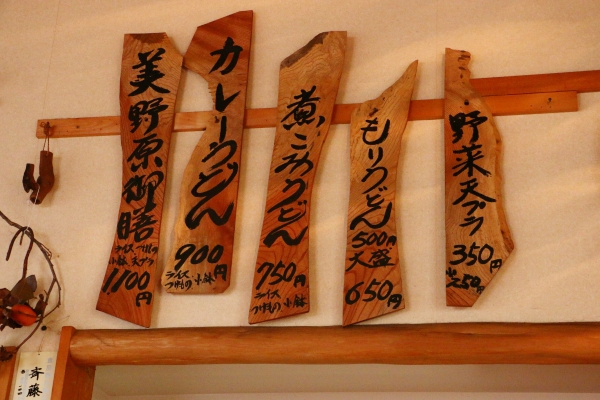 美野原御膳
ライス つけもの
小鉢 天プラ
1100円
カレーうどん
900円
ライス
つけもの 小鉢
煮こみうどん
750円
ライス
つけもの 小鉢
もりうどん
500円
大盛
650円
野菜天プラ
350円
小250円
斉藤